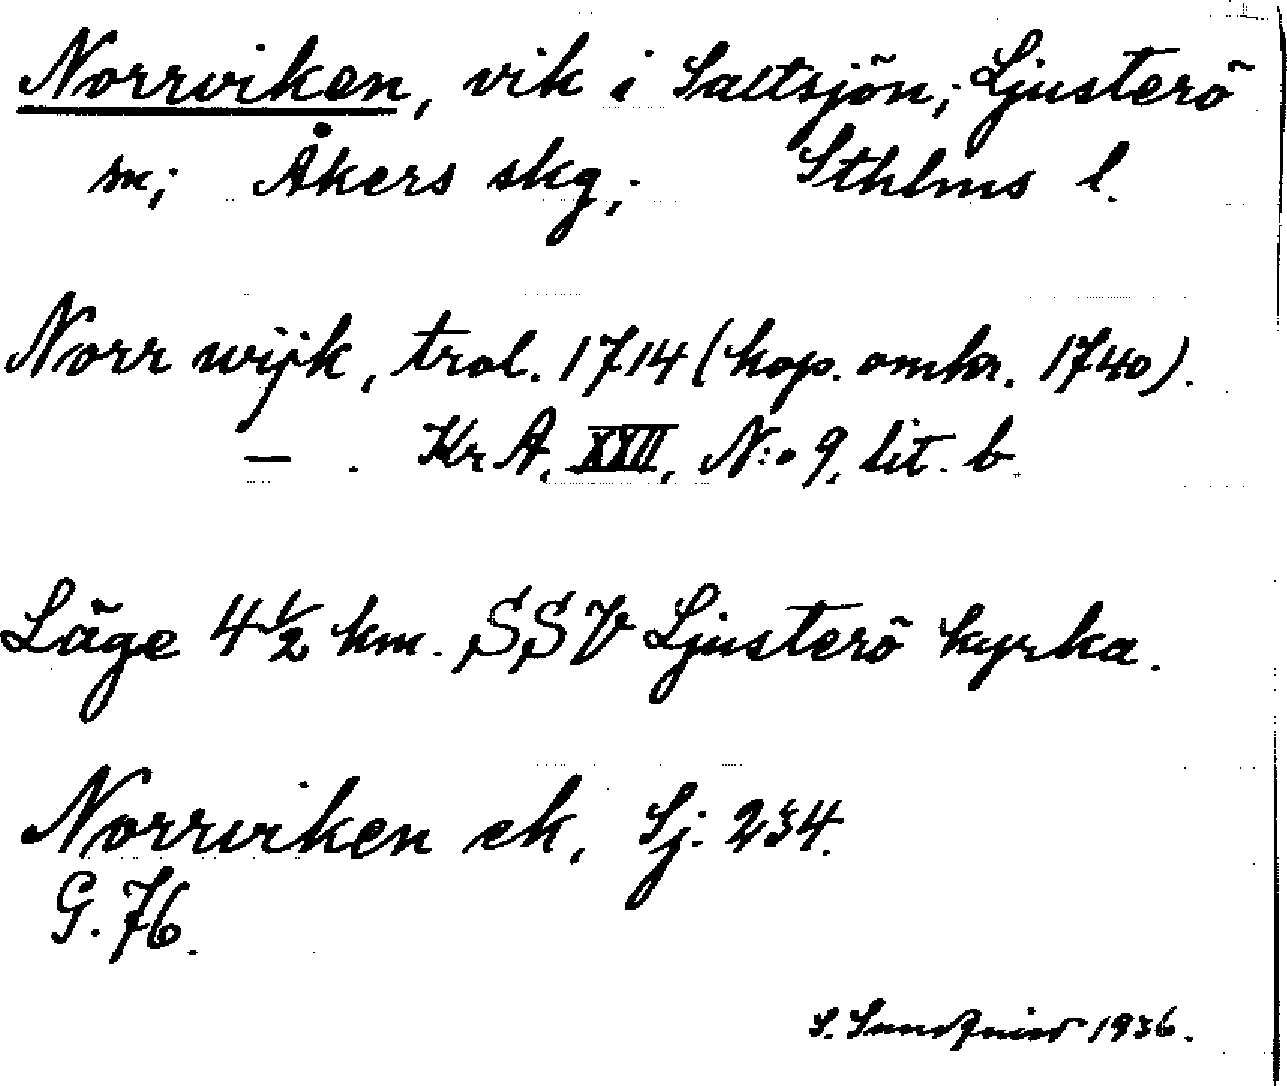 Norrviken, vik i Saltsjön; Ljusterö
sn; Åkers skg; Sthlms l.
Norr wijk, trol. 1714 (kop. omkr. 1740).
— . Kr A, XXII, N:o 9, lit. b.
Läge 4 1/2 km. SSV Ljusterö kyrka.
Norrviken ek, Sj. 234.
G. 76.
S. 1936.